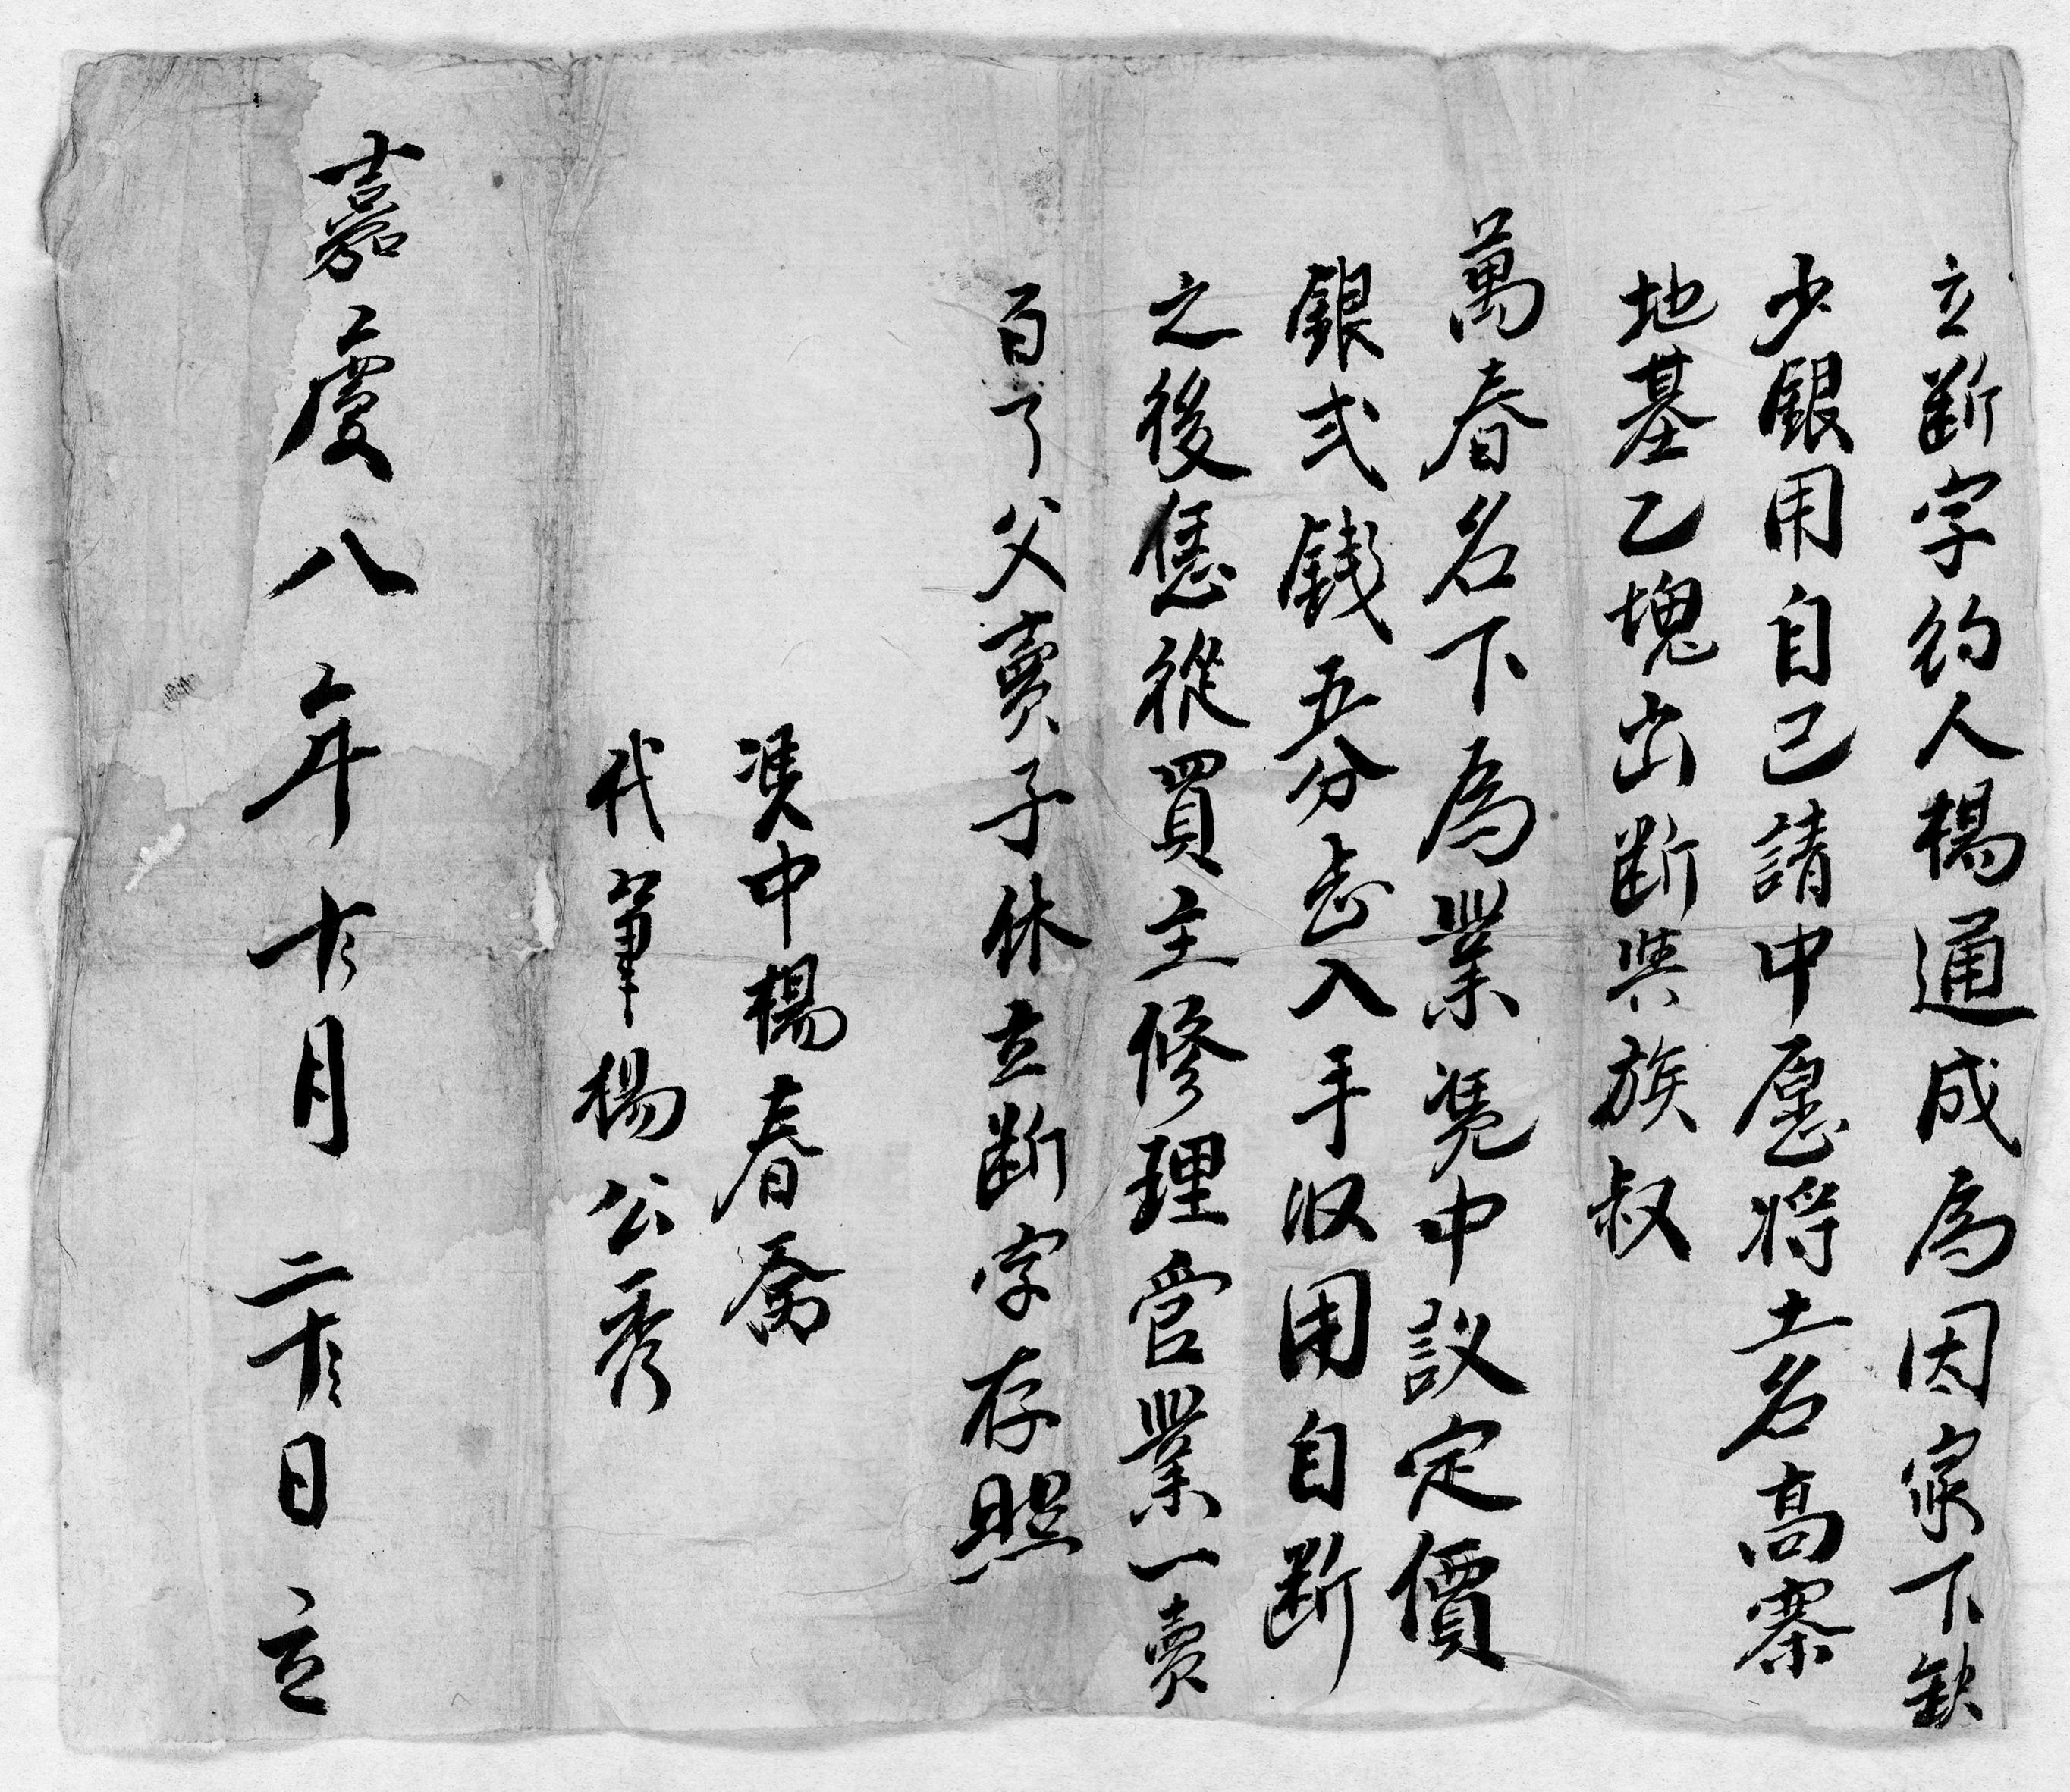 立断字約人楊通成為因家下缺
少銀用自己請中愿将土名高寨
地基乙塊出断與族叔
萬春名下為業凴中議定價
銀弍銭五分忐入手収用自断
之後恁從買主修理管業一賣
百了父賣子休立断字存照
凴中楊春喬
代筆楊公秀
嘉慶八年十月二十日立